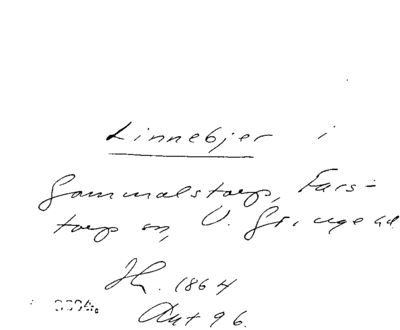 Linnebjer i
Gammalstorp, Fars-
torp sn, V. Göinge hd.
Jh. 1864
Ant 96.